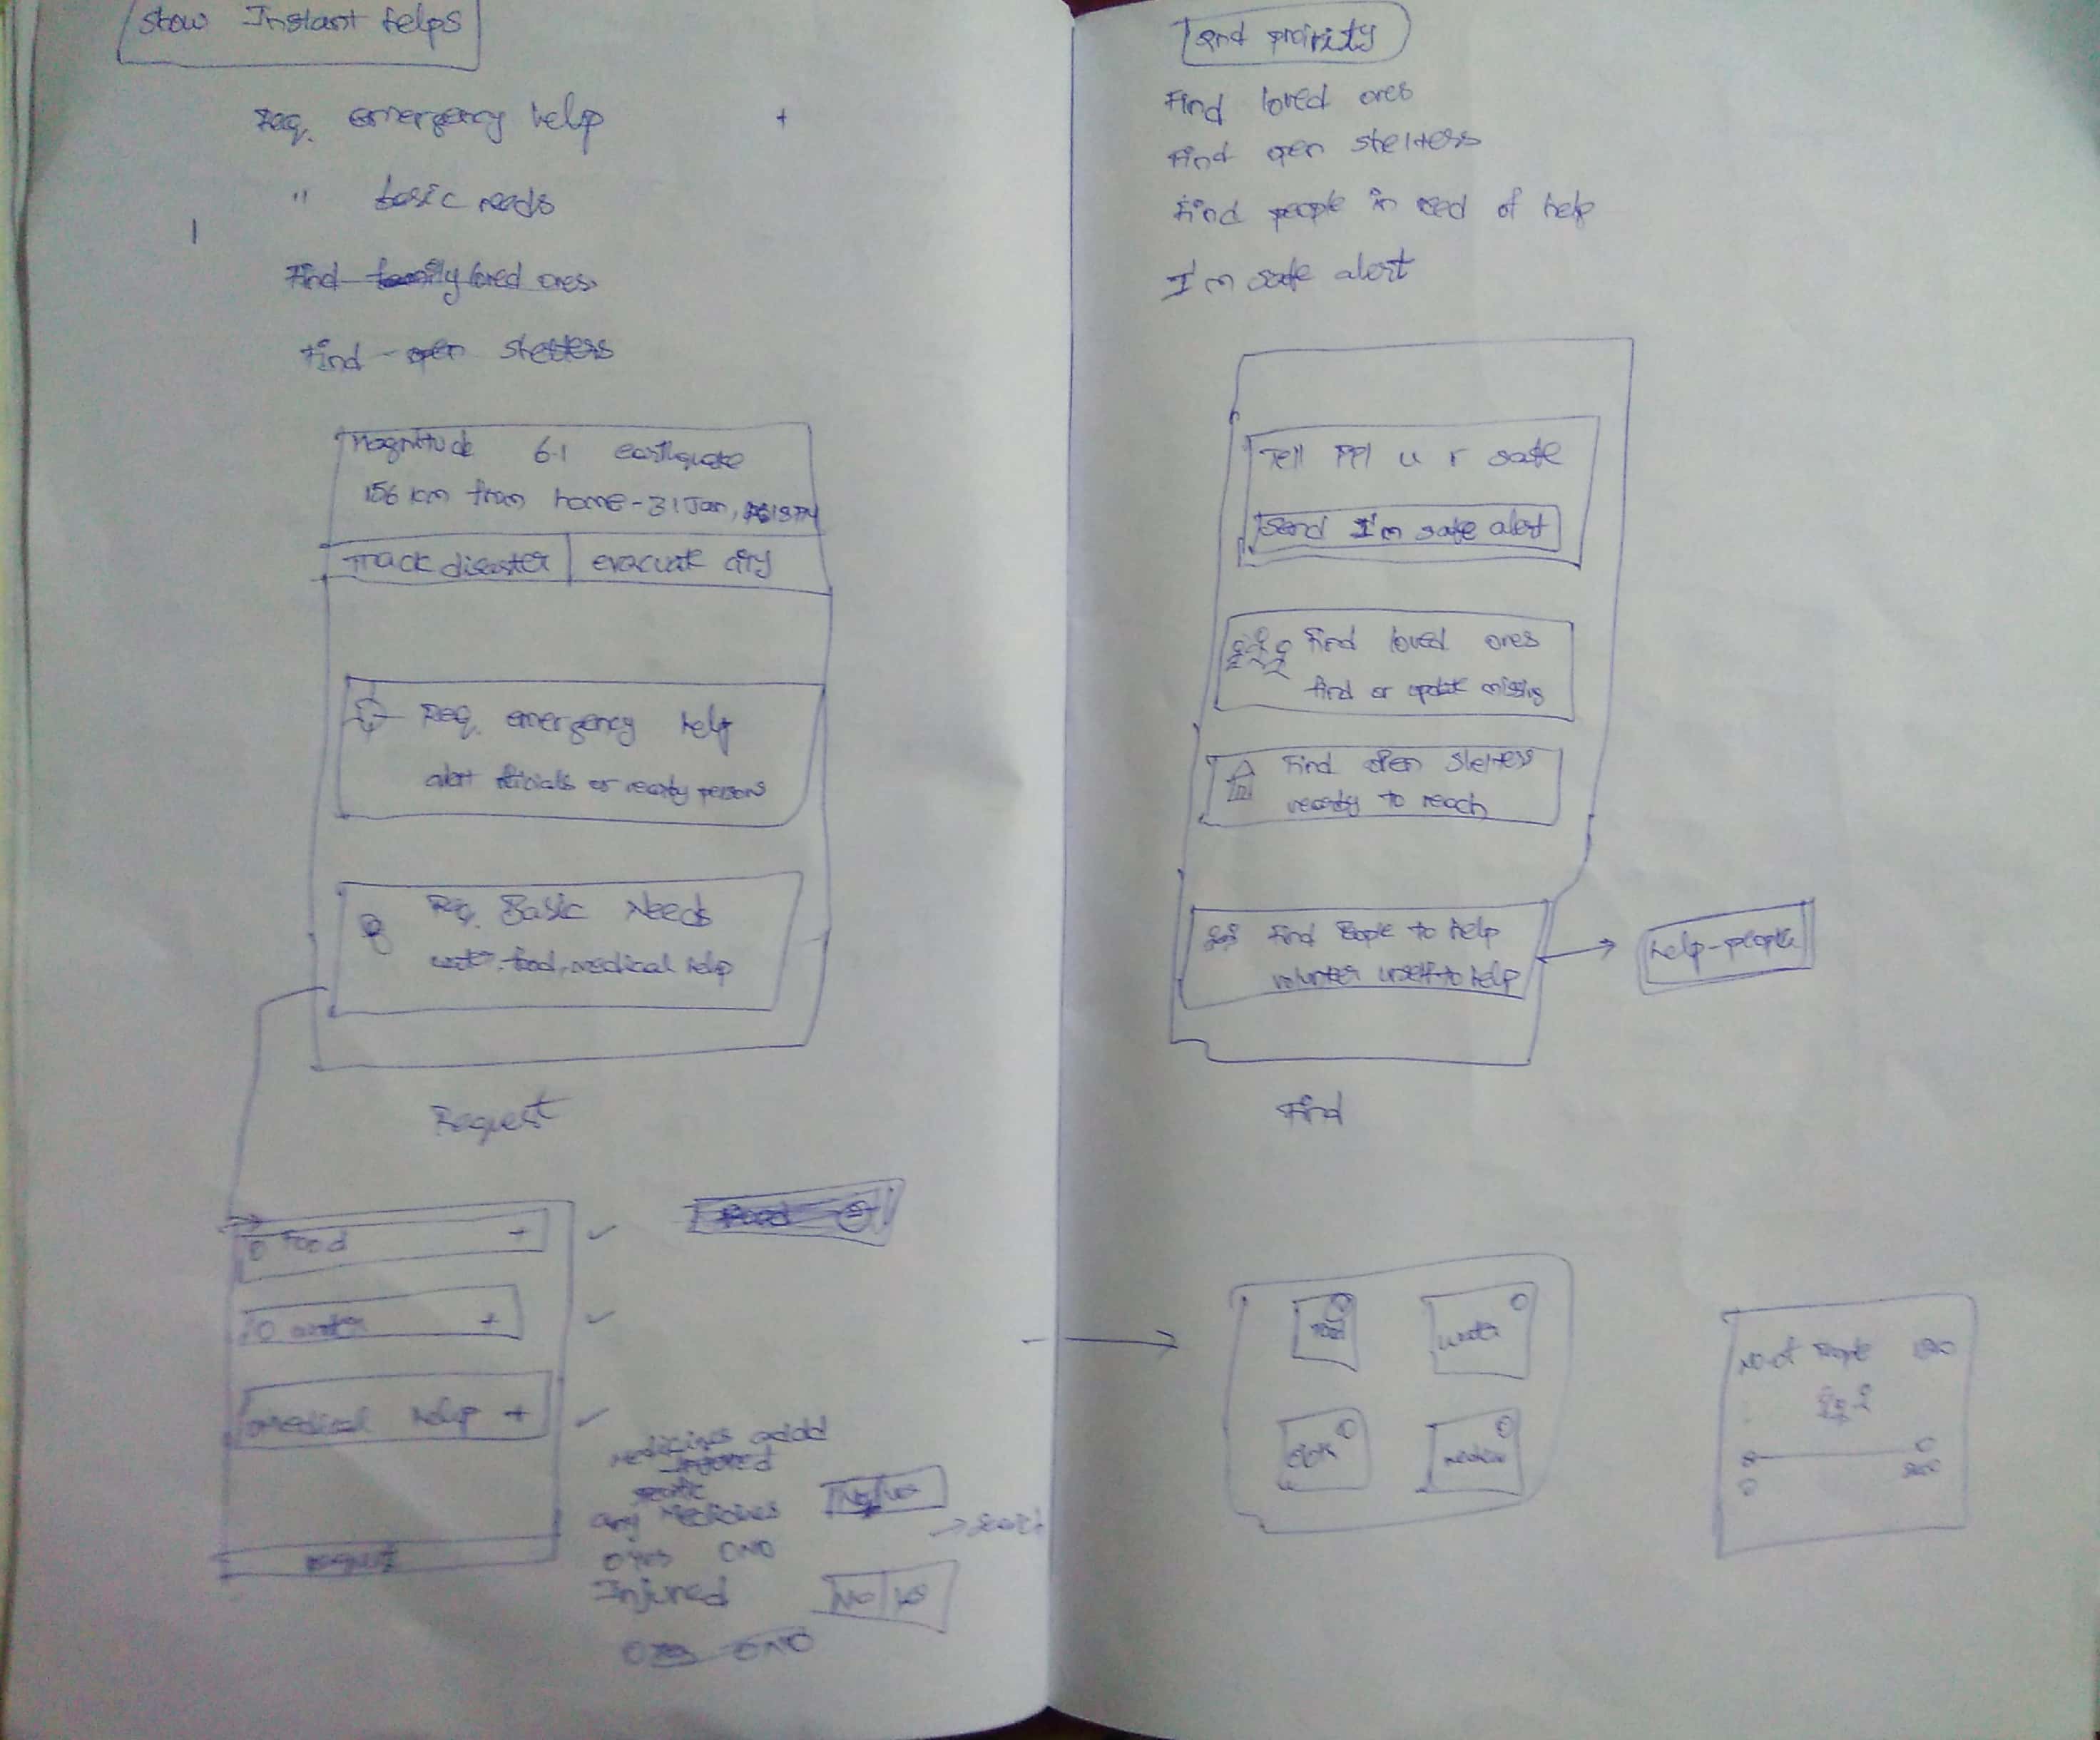 Show Instant helps
Req. emergency help
+
" basic needs
Find family loved ones
Find open shelters
Magnitude 6.1 earthquake
156 km from home - 31 Jan,
Track disaster
evacuate city
Req. emergency help
alert officials or nearby persons
Req. Basic Needs
water, food, medical help
Request
Food +
Food
water +
medical help +
Medicines
Injured
any Medicines
O Yes O NO
Injured
No Yes
O Yes O NO
request
2nd priority
Find loved ones
Find open shelters
Find people in need of help
I'm safe alert
Tell PPl u r safe
Send I'm safe alert
Find loved ones
find or update missing
Find open shelters
nearby to reach
Find People to help
volunteer urself to help
help-people
Find
Food
water
medicine
No of People
0